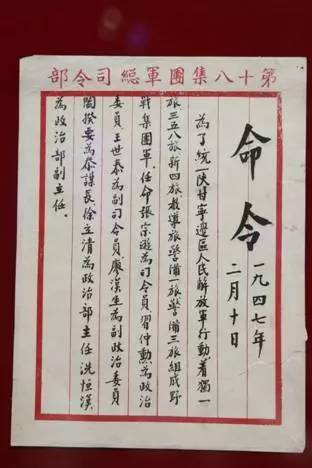 第十八集團軍總司令部
命令
一九四七年
二月十日
為了統一陝甘寧邊區人民解放軍行動着獨一
旅三五八旅新四旅教導旅警備旅警備三旅組成野
戰集團軍.任命張宗遜為司令員習仲勳為政治
委員王世泰為副司令員廖漢生為副政治委員
閻揆要為參謀長徐立清為政治部主任冼恒漢
為政治部副主任.